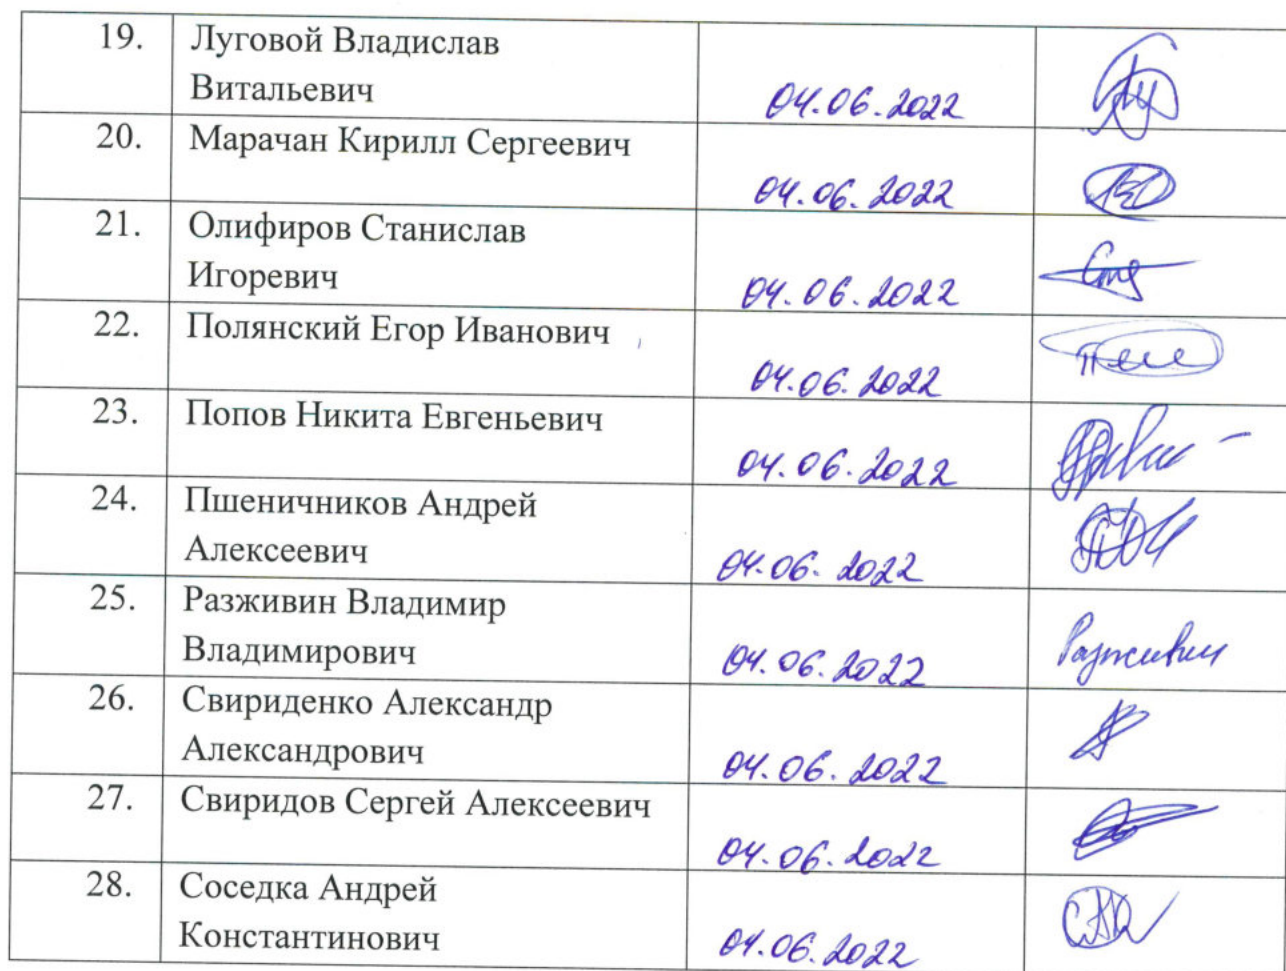 19. Луговой Владислав
Витальевич 04.06.2022
20. Марачан Кирилл Сергеевич
04.06.2022
21. Олифиров Станислав
Игоревич 04.06.2022
22. Полянский Егор Иванович
04.06.2022
23. Попов Никита Евгеньевич
04.06.2022
24. Пшеничников Андрей
Алексеевич 04.06.2022
25. Разживин Владимир
Владимирович 04.06.2022 Разживин
26. Свириденко Александр
Александрович 04.06.2022
27. Свиридов Сергей Алексеевич
04.06.2022
28. Соседка Андрей
Константинович 04.06.2022